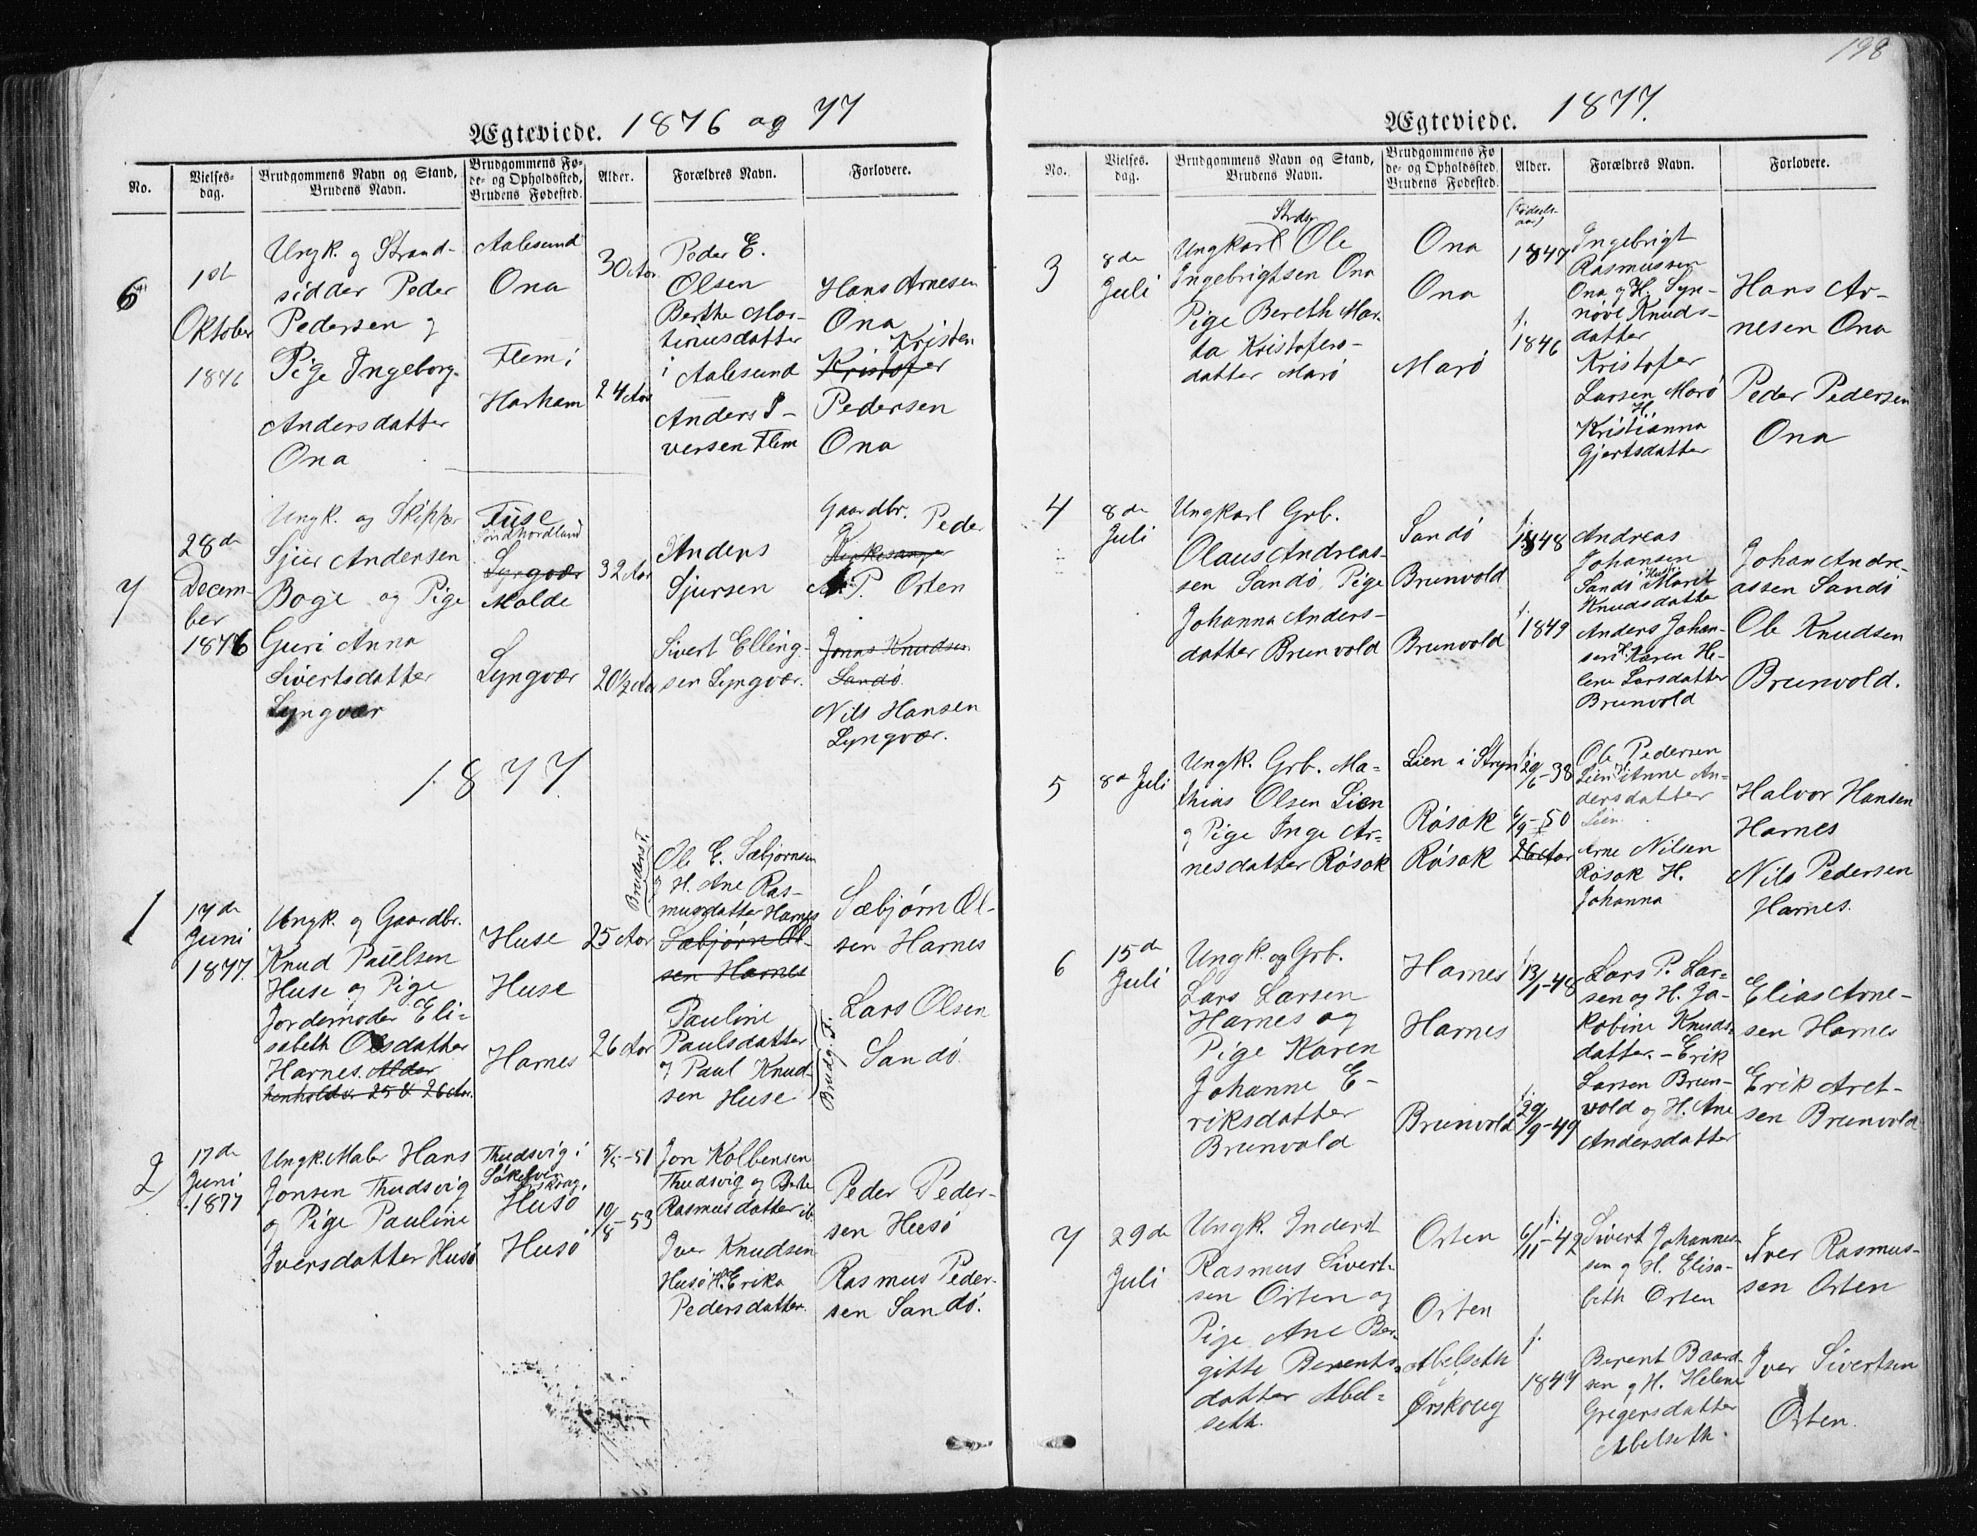 Ægteviede. 1876 og 77
No.
Vielses-
dag.
Brudgommens Navn og Stand,
Brudens Navn.
Brudgommens Fø-
de- og Opholdssted,
Brudens Fødested.
Alder.
Forældres Navn.
Forlovere.
6
1ste
Oktober
1876
Ungk. og Strand-
sidder Peder
Pedersen og
Pige Ingeborg
Andersdatter
Ona
Aalesund
Ona
Flem i
Harham
30 Aar
24 Aar
Peder E.
Olsen
Berthe Mar-
tinusdatter
i Aalesund
Anders I-
versen Flem
Hans Arnesen
Ona
Kristen
Kristofer
Pedersen
Ona
7
28de
Decem-
ber
1876
Ungk. og Skipper
Sjur Andersen
Boge og Pige
Guri Anna
Sivertsdatter
Lyngvær
Fuse
Søndhordland
Lyngvær
Molde
Lyngvær
32 Aar
20½ Aar
Anders
Sjursen
Sivert Elling-
sen Lyngvær.
Gaardbr. Peder
Kirkesanger
P. Orten
Jonas Knudsen
Sandø
Nils Hansen
Lyngvær.
1877
1
17de
Juni
1877
Ungk. og Gaardbr.
Knud Paulsen
Huse og Pige
Jordemoder Eli-
sabeth Olsdatter
Harnes. Alder
henholdsv 25 & 26 Aar.
Huse
Huse
Harnes
25 Aar
26 Aar
Brudens F.
Ole E. Sæbjørnsen
og H. Ane Ras-
musdatter Harnes
Sæbjørn Ol-
sen Harnes
Pauline
Paulsdatter
og Paul Knud-
sen Huse
Brudg. F.
Sæbjørn Ol-
sen Harnes
Lars Olsen
Sandø.
2
17de
Juni
1877
Ungk. Maler Hans
Jonsen Thudsvig
og Pige Pauline
Iversdatter Husø
Thudsvig i
Husø
Husø
5/5-51
10/8-53
Jon Kolbensen
Thudsvig og Berte
Rasmusdatter ib.
Iver Knudsen
Husø H. Erika
Pedersdatter.
Peder Peder-
sen Husø
Rasmus Peder-
sen Sandø.
198
Ægteviede. 1877.
No.
Vielses-
dag.
Brudgommens Navn og Stand,
Brudens Navn.
Brudgommens Fø
de- og Opholdssted
Brudens Fødested.
Alder.
Forældres Navn.
Forlovere.
3
8de
Juli
Strdsr
Ungkarl Ole
Ingebrigtsen Ona
Pige Bereth Mar-
ta Kristofers-
datter Marø
Ona
Ona
Marø
(Fødsels-
aar)
1847
f.
1846
Ingebrigt
Rasmussen
Ona og H. Syn-
nøve Knuds-
datter
Kristofer
Larsen Marø
H.
Kristianna
Gjertsdatter
Hans Ar-
nesen Ona
Peder Pedersen
Ona
4
8de
Juli
Ungkarl Grb.
Olaus Andreas-
sen Sandø Pige
Johanna Anders-
datter Brunvold
Sandø
Brunvold
Brunvold
f.
1848
f.
1849
Andreas
Johansen
Sandø Hustr. Marit
Knudsdatter
Anders Johan-
sen H. Karen He-
lene Larsdatter
Brunvold
Johan Andre-
assen Sandø
Ole Knudsen
Brunvold.
5
8de Juli
Ungk. Grb. Ma-
thias Olsen Lien
og Pige Inge Ar-
nesdatter Røsok
Lien i Stryn
Røsok
Røsok
f.
29/6-38
6/9-50
26 Aar
Ole Pedersen
Lien H. Anne An-
dersdatter
Lien.
Arne Nilsen
Røsok H.
Johanna
Halvor Hansen
Harnes
Nils Pedersen
Harnes.
6
15de
Juli
Ungk. og Grb.
Lars Larsen
Harnes og
Pige Karen
Johanne E-
riksdatter
Brunvold
Harnes
Harnes
Brunvold
f.
13/1-48
f.
29/9-49
Lars P. Lar-
sen og H. Ja-
kobine Knuds-
datter. - Erik
Larsen Brun-
vold og H. Ane
Andersdatter
Elias Arne-
sen Harnes
Erik Aret-
sen Brunvold
7
29de
Juli
Ungk. Inderst
Rasmus Sivert-
sen Orten og
Pige Ane Ber-
gitte Berents-
datter Abel-
seth.
Orten
Orten
Abelseth
Ørskoug
f.
6/11-42
f.
1847
Sivert Johannes-
sen og H. Elisa-
beth Orten
Berent Baard-
sen og H. Helene
Gregersdatter
Abelseth.
Iver Rasmus-
sen Orten
Iver Sivertsen
Orten.